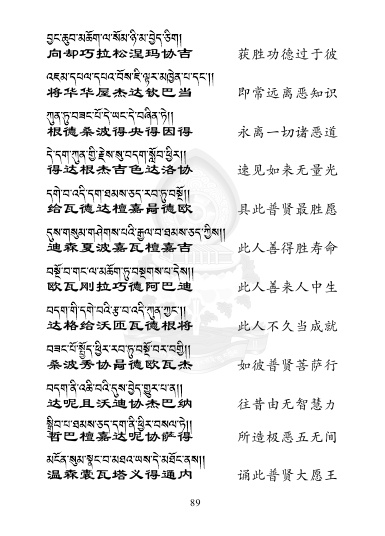 བྱང་ཆུབ་མཆོག་ལ་སོམ་ཉི་མ་བྱེད་ཅིག།
向却巧拉松涅玛协吉 获胜功德过于彼
འཇམ་དཔལ་དཔའ་བོས་ཇི་ལྟར་མཁྱེན་པ་དང་།།
将华华屋杰达钦巴当 即常远离恶知识
ཀུན་ཏུ་བཟང་པོ་དེ་ཡང་དེ་བཞིན་ཏེ།།
根德桑波得央得因得 永离一切诸恶道
དེ་དག་ཀུན་གྱི་རྗེས་སུ་བདག་སློབ་ཕྱིར།།
得达根杰吉色达洛协 速见如来无量光
དགེ་བ་འདི་དག་ཐམས་ཅད་རབ་ཏུ་བསྔོ།།
给瓦德达檀嘉昌德欧 具此普贤最胜愿
དུས་གསུམ་གཤེགས་པའི་རྒྱལ་བ་ཐམས་ཅད་ཀྱིས།།
迪森夏波嘉瓦檀嘉吉 此人善得胜寿命
བསྔོ་བ་གང་ལ་མཆོག་ཏུ་བསྔགས་པ་དེས།།
欧瓦刚拉巧德阿巴迪 此人善来人中生
བདག་གི་དགེ་བའི་རྩ་བ་འདི་ཀུན་ཀྱང་།།
达格给沃匝瓦德根将 此人不久当成就
བཟང་པོ་སྤྱོད་ཕྱིར་རབ་ཏུ་བསྔོ་བར་བགྱི།།
桑波秀协昌德欧瓦杰 如彼普贤菩萨行
བདག་ནི་འཆི་བའི་དུས་བྱེད་གྱུར་པ་ན།།
达呢且沃迪协杰巴纳 往昔由无智慧力
སྒྲིབ་པ་ཐམས་ཅད་དག་ནི་ཕྱིར་བསལ་ཏེ།།
哲巴檀嘉达呢协萨得 所造极恶五无间
མངོན་སུམ་སྣང་བ་མཐའ་ཡས་དེ་མཐོང་ནས།།
温森囊瓦塔义得通内 诵此普贤大愿王
89